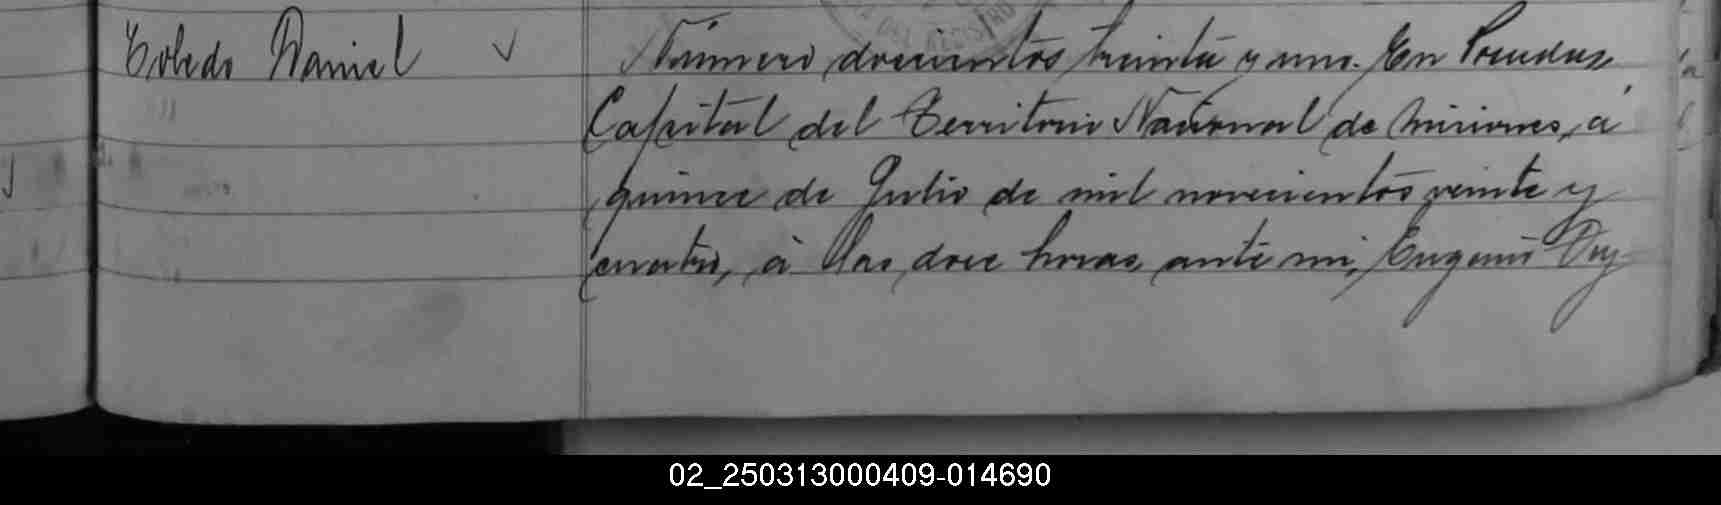 Toledo Daniel
DEL REGISTRO
Número doscientos treinta y uno. En Posadas,
Capital del Territorio Nacional de Misiones, á
quince de Julio de mil novecientos veinte y
cuatro, á las doce horas, ante mi, Eugenio
02_250313000409-014690